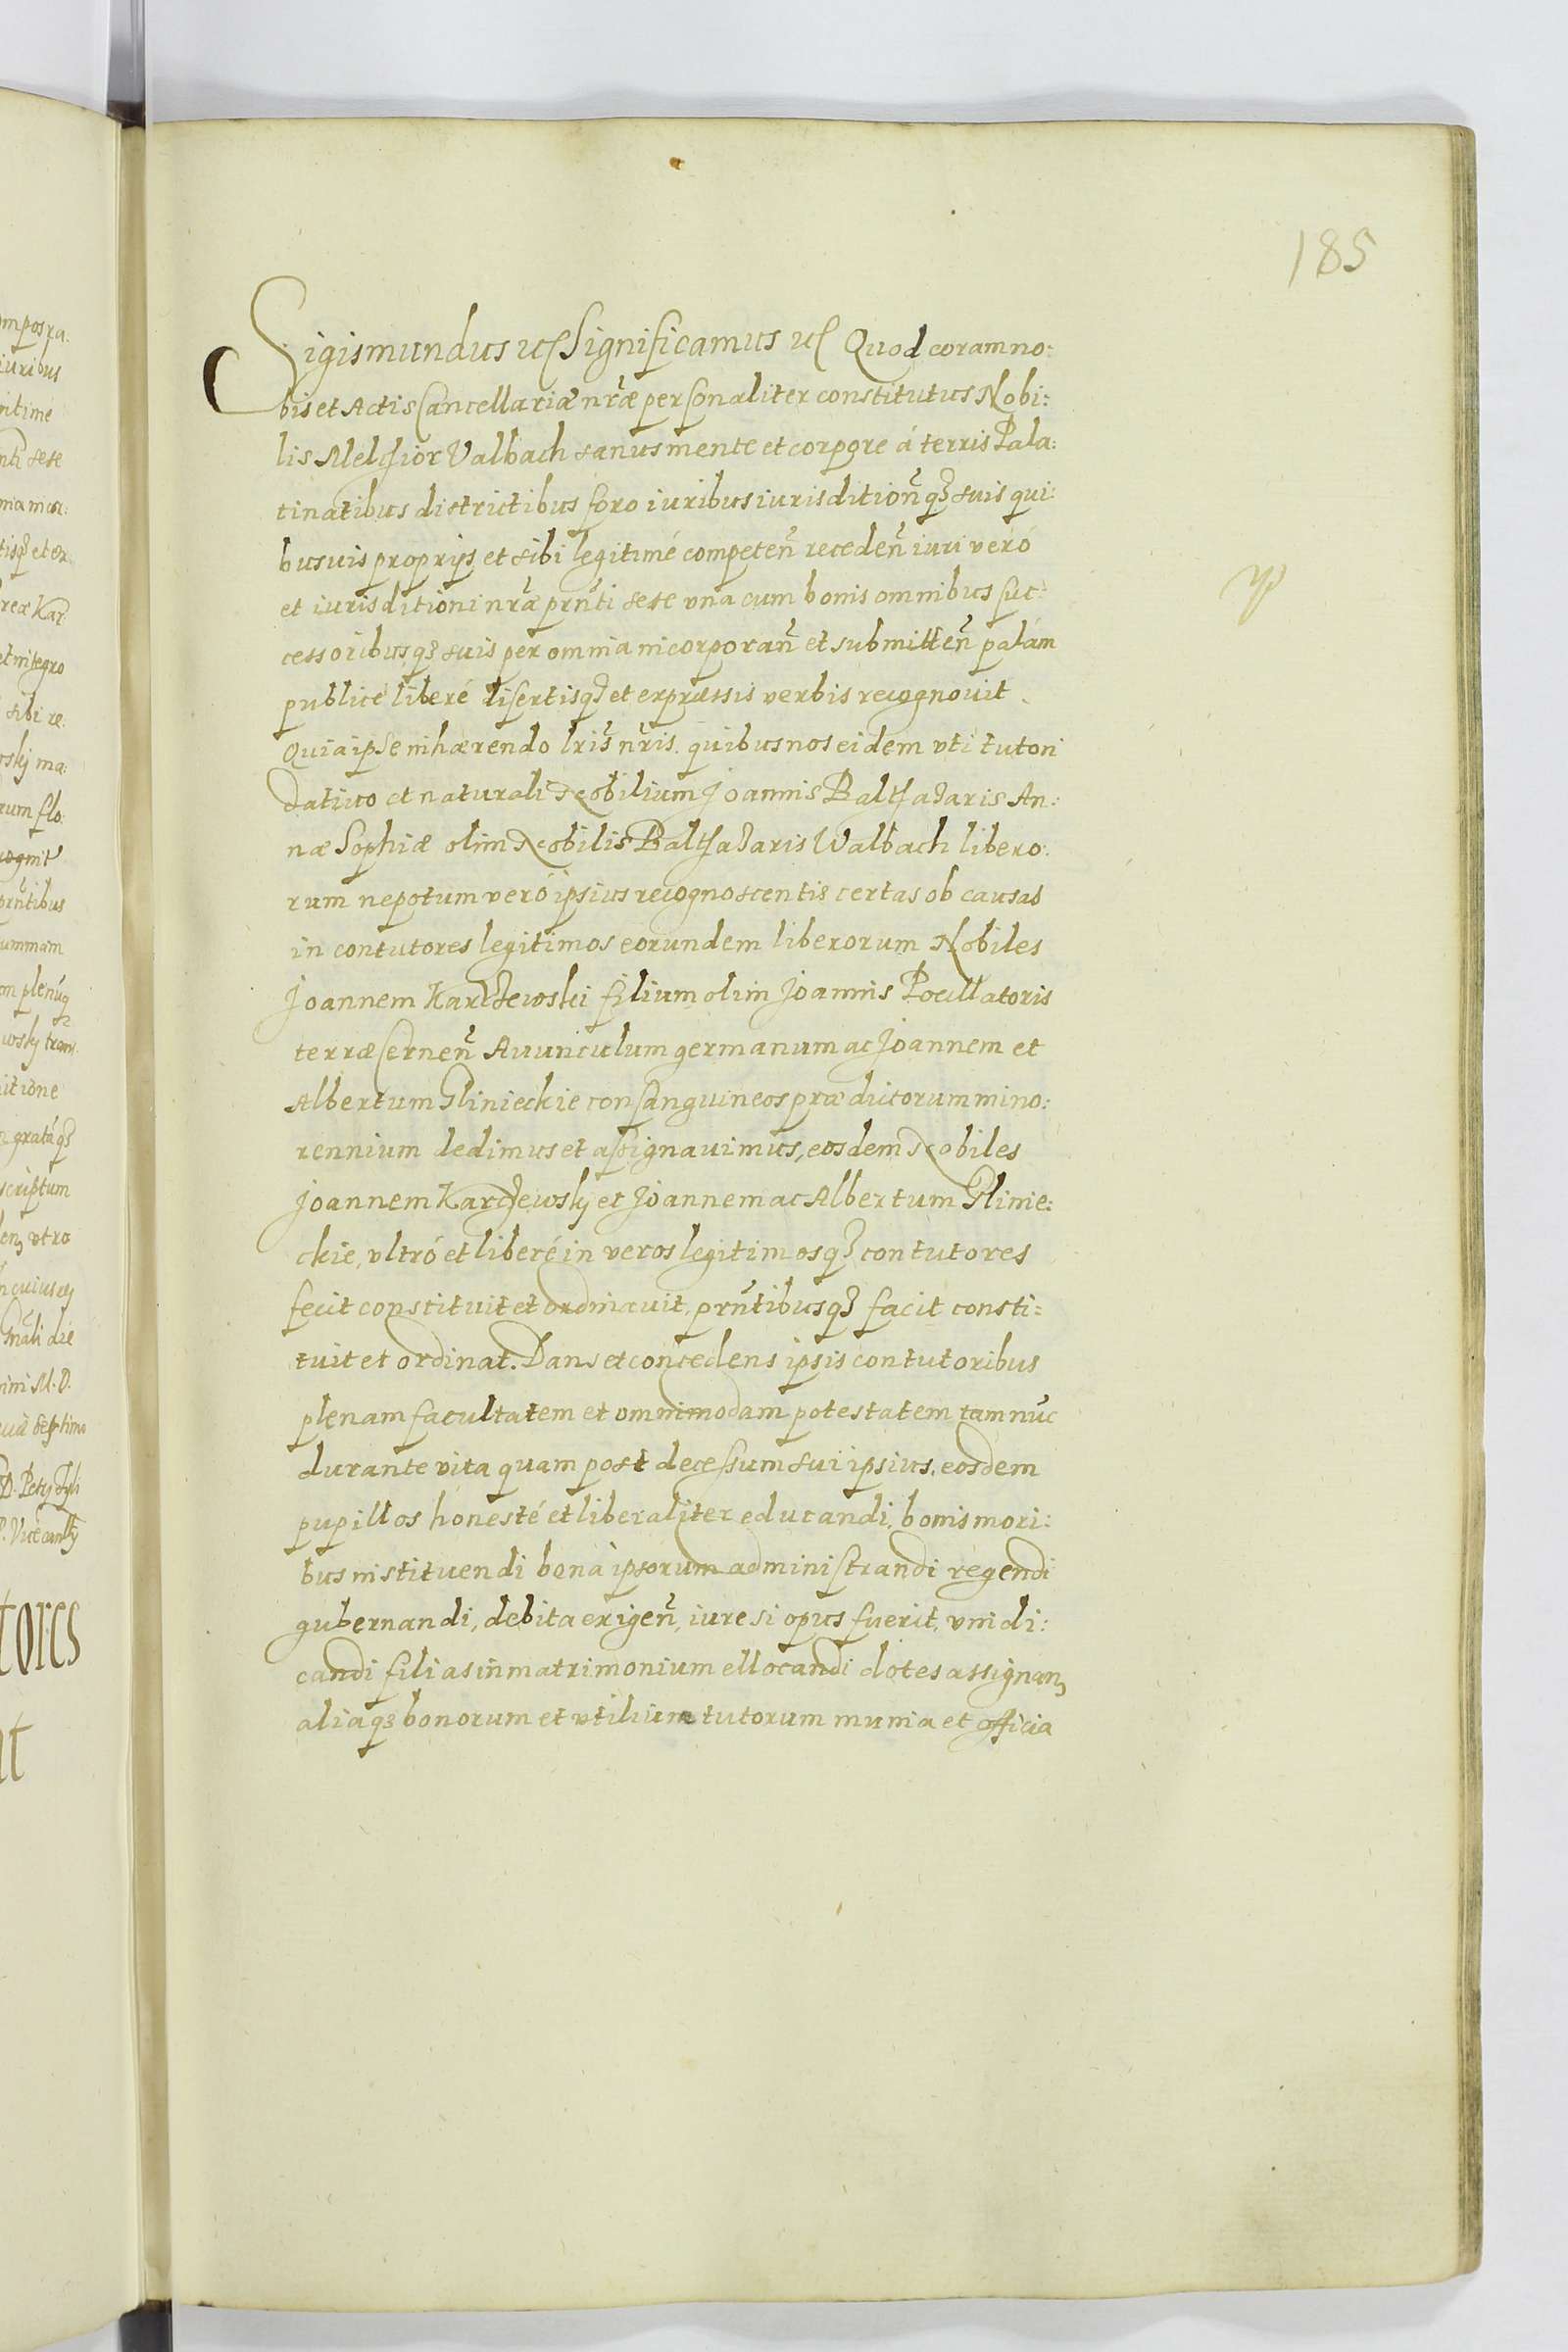 185
Sigismundus etc Significamus etc Quod coram no:
bis et Actis Cancellariæ nr̃æ personaliter constitutus Nobi:
lis Melchior Valbach sanus mente et corpore á terris Pala:
tinatibus districtibus foro iuribus iurisdition̄q3 suis qui:
busuis proprijs et sibi legitimé competen̄ receden̄ iuri veró
et iurisditioni nr̃æ prn̄ti sese vna cum bonis omnibus suc:
cessoribusq3 suis per omnia incorporan̄ et submitten̄ palám
publicé liberé disertisq3 et expræssis verbis recognouit.
Quia ipse inhærendo lris̃ nr̃is. quibus nos eidem vti tutori
datiuo et naturali Nobilium Joannis Balthazaris An:
næ Sophiæ olim Nobilis Balthazaris Walbach libero:
rum nepotum veró ipsius recognoscentis certas ob causas
in contutores legitimos eorundem liberorum Nobiles
Joannem Karczewski filium olim Joannis Pocillatoris
terræ Cernen̄ Auunculum germanum ac Joannem et
Albertum Glinieckie consanguineos prædictorum mino:
rennium dedimus et assignauimus, eosdem Nobiles
Joannem Karczewskj et Joannem ac Albertum Glinie:
ckie, vltró et liberé in veros legitimosq3 contutores
fecit constituit et ordinauit, prn̄tibusq3 facit consti=
tuit et ordinat. Dans et concedens ipsis contutoribus
plenam facultatem et omnimodam potestatem tam nūc
durante vita quam post decessum sui ipsius, eosdem
pupillos honesté et liberaliter educandi, bonis mori:
bus instituendi bona ipsorum administrandi regendi
gubernandi, debita exigen̄, iure si opus fuerit, vindi:
candi filias in matrimonium ellocandi dotes assignan3
aliaq3 bonorum et vtilium tutorum munia et officia